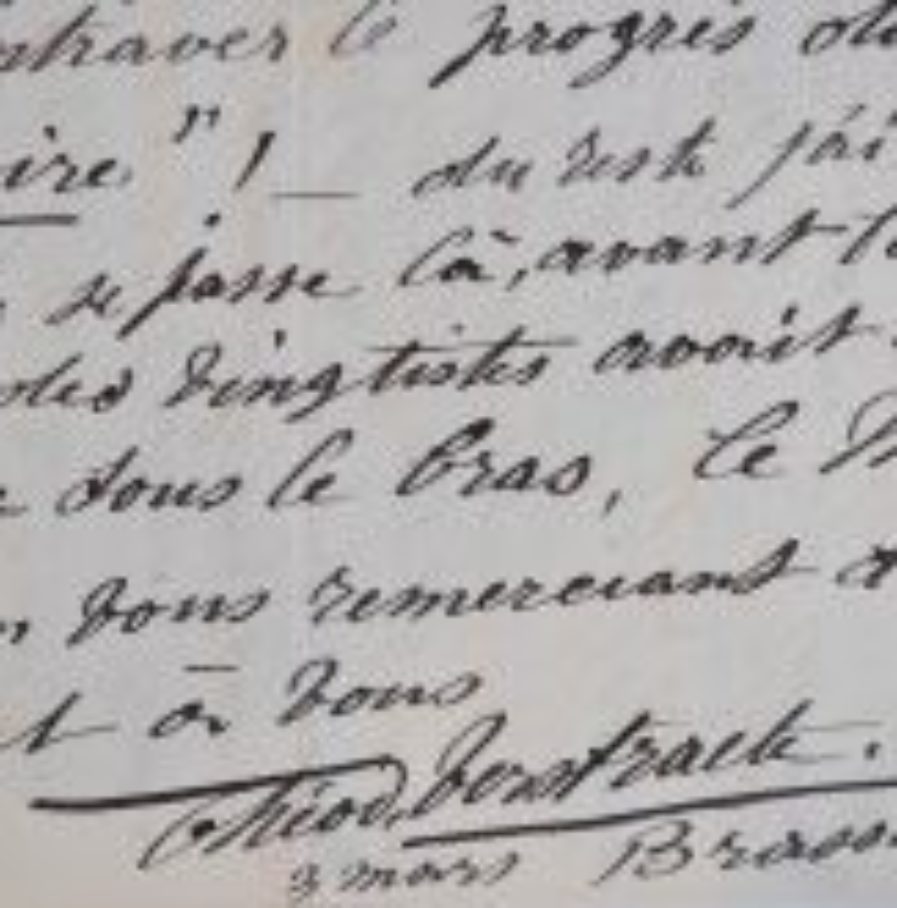 entraver le progrès de
ire." ! — du reste j'ai
se passe là, avant l
des vingtistes avait
sous le bras, le
vous remerciant
t à vous
Théod. Verstraete.
3 mars Brass